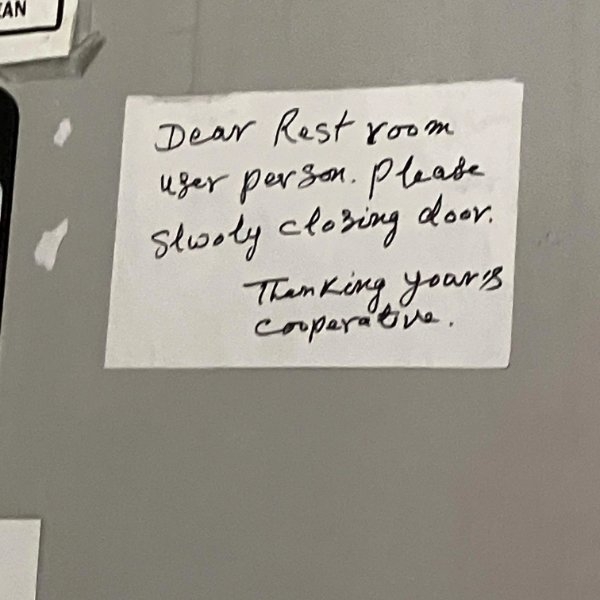 AN
Dear Rest room
user person. Please
Slwoly closing door.
Thanking your's
cooperative.